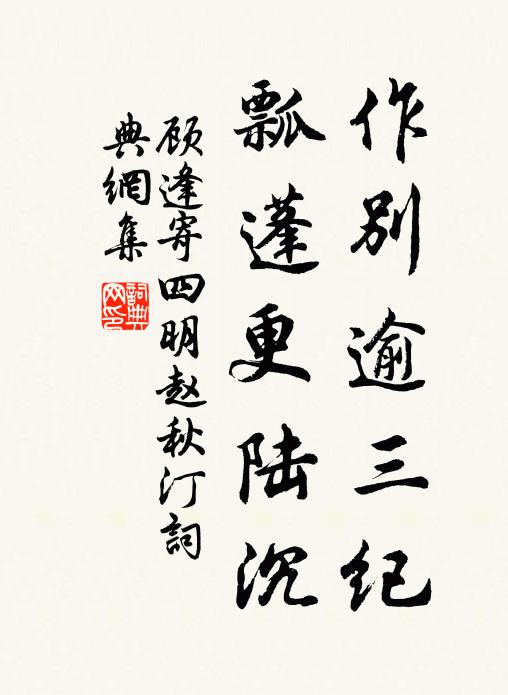 作别逾三纪
瓢蓬更陆沉
顾逢寄四明赵秋汀詞
典網集
詞典网印